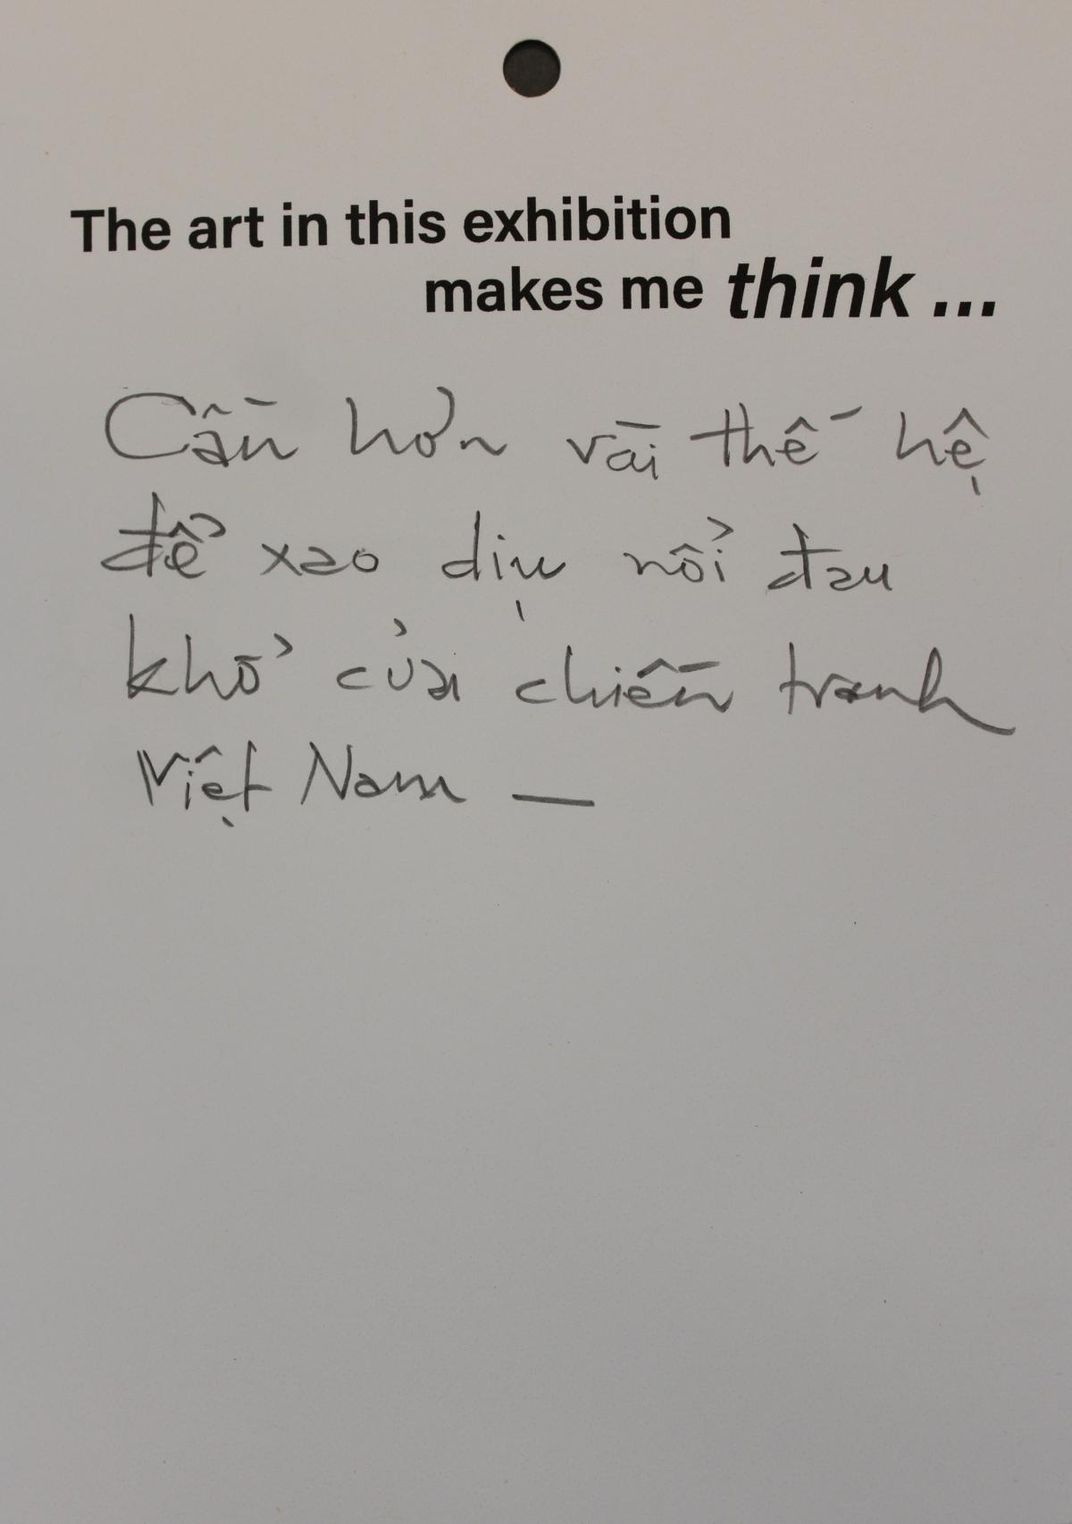 The art in this exhibition
makes me think ...
Cần hơn vài thế hệ
để xao dịu nổi đau
khổ của chiến tranh
Việt Nam —